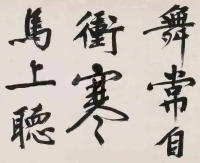 舞常自
衝寒
馬上聽